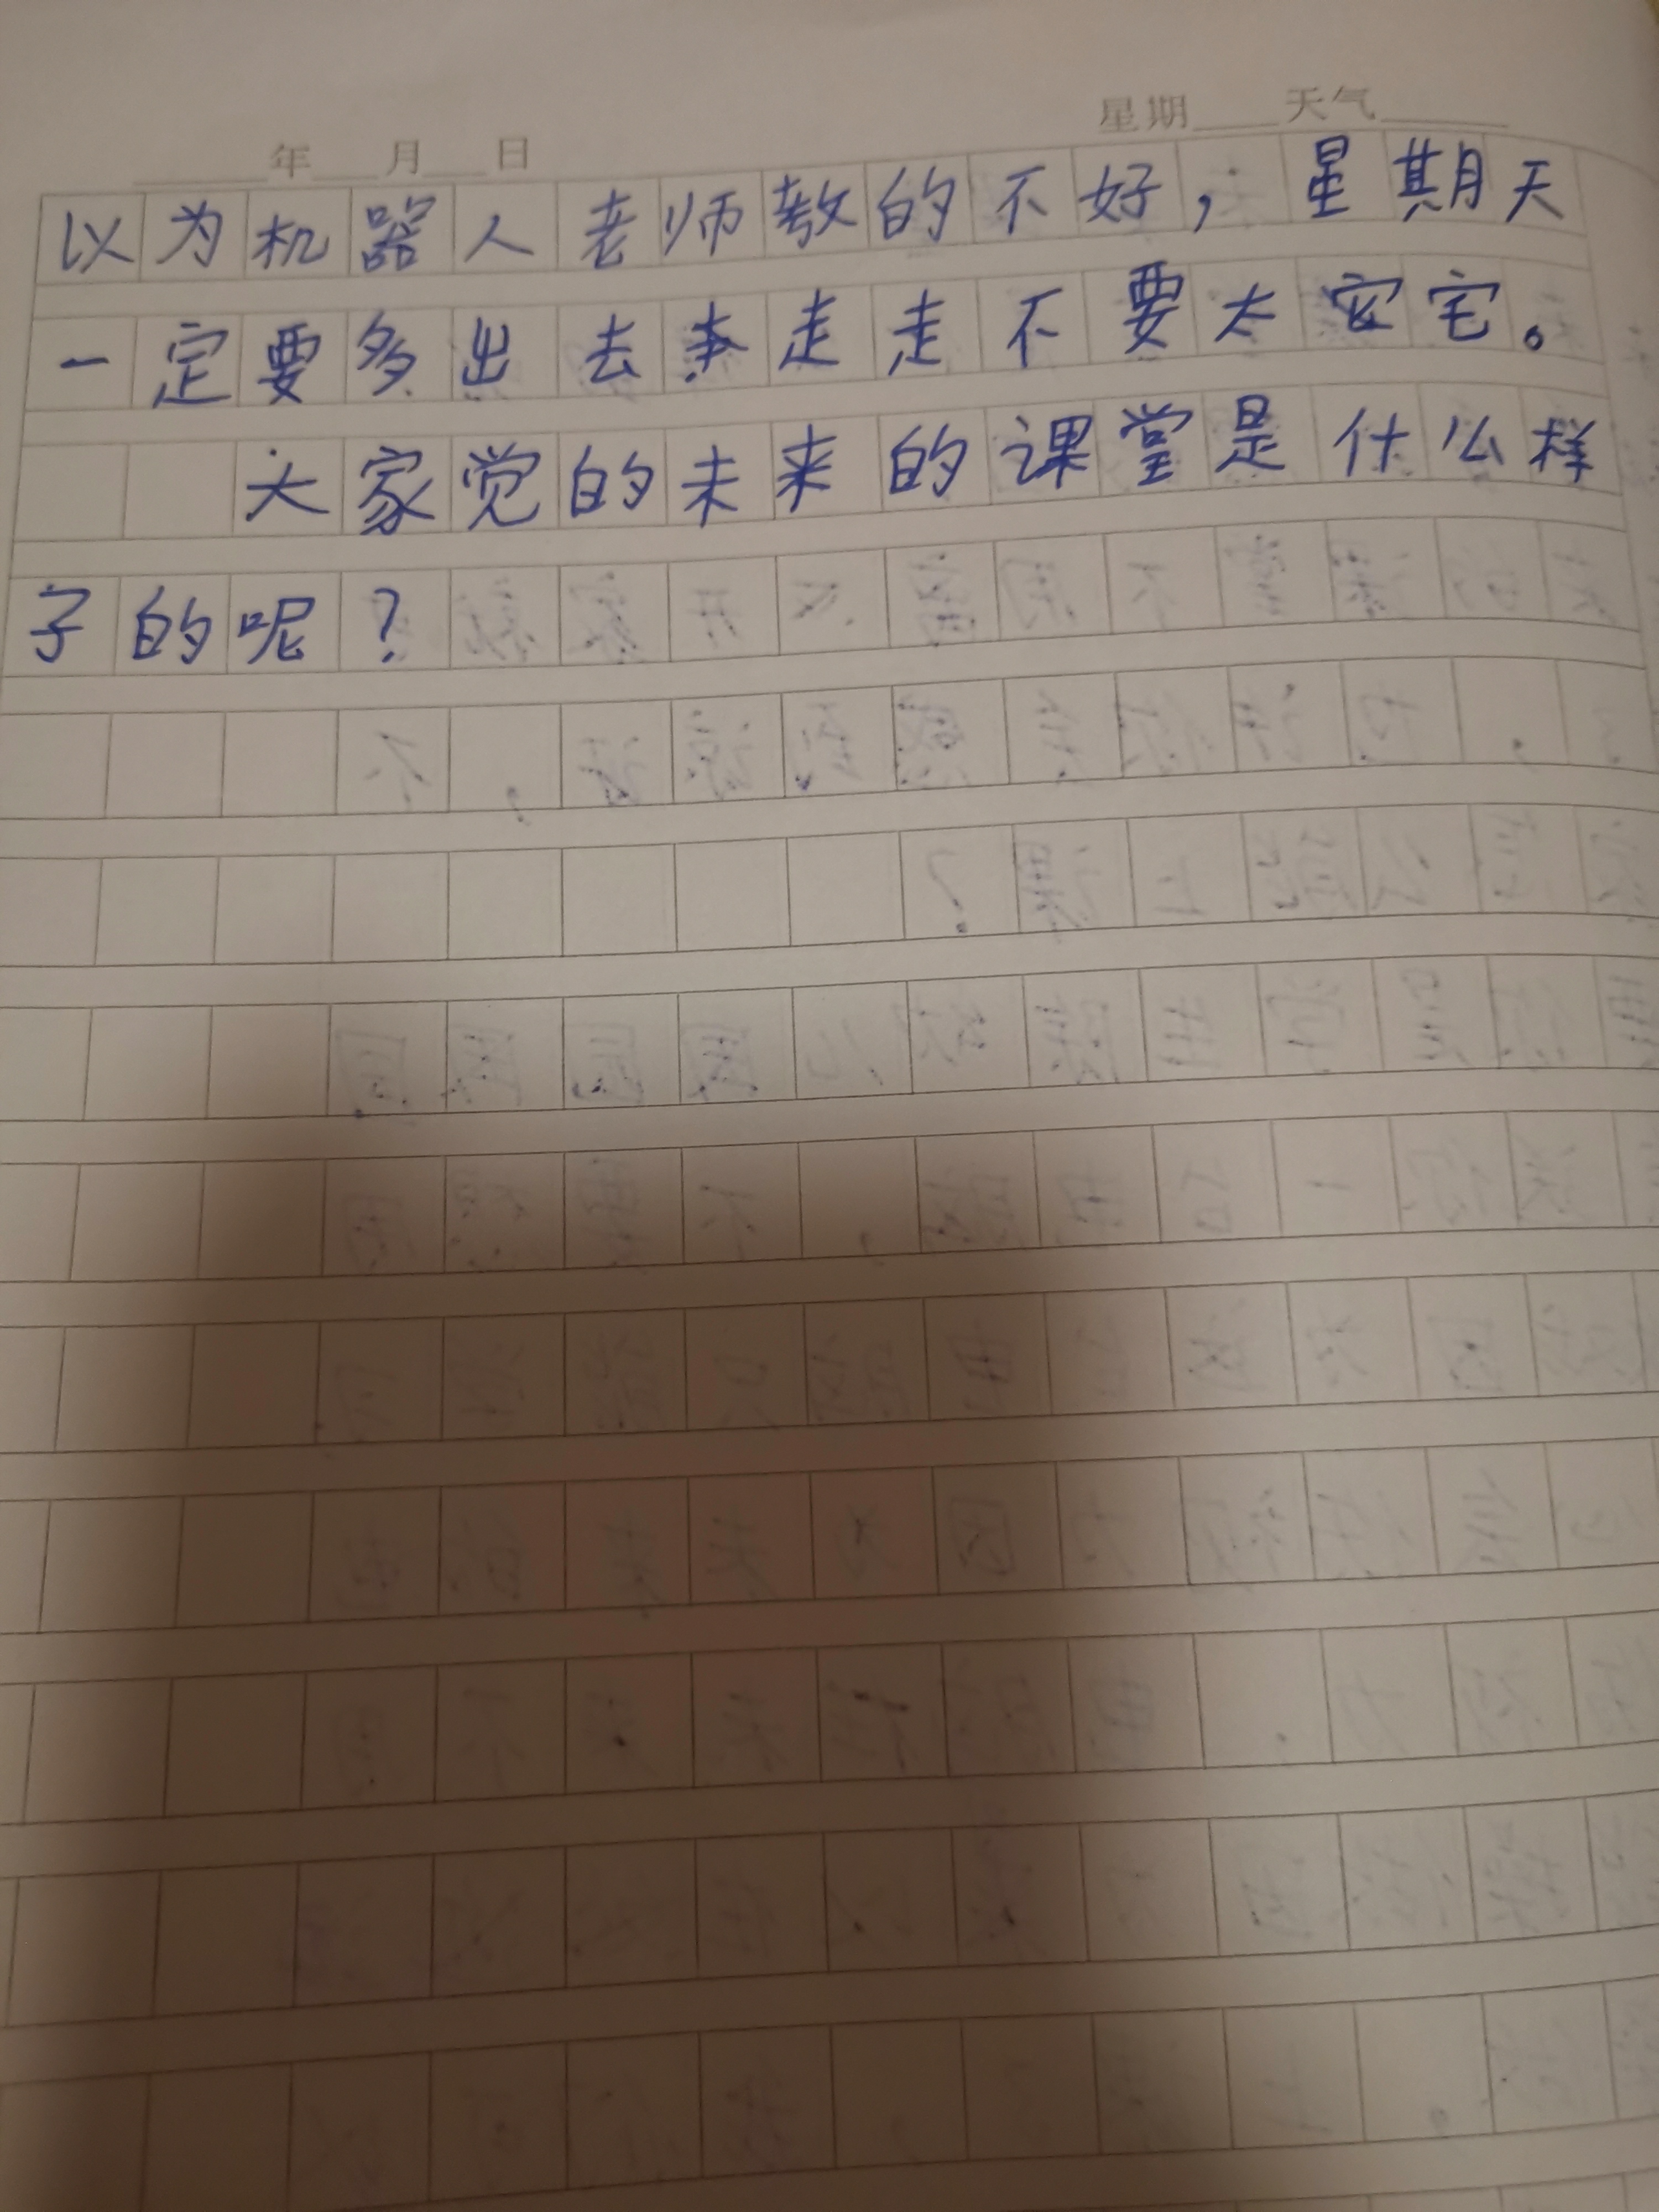 年 月 日 星期 天气
以为机器人老师教的不好，星期天
一定要多出去走走不要太宅。
大家觉的未来的课堂是什么样
子的呢？